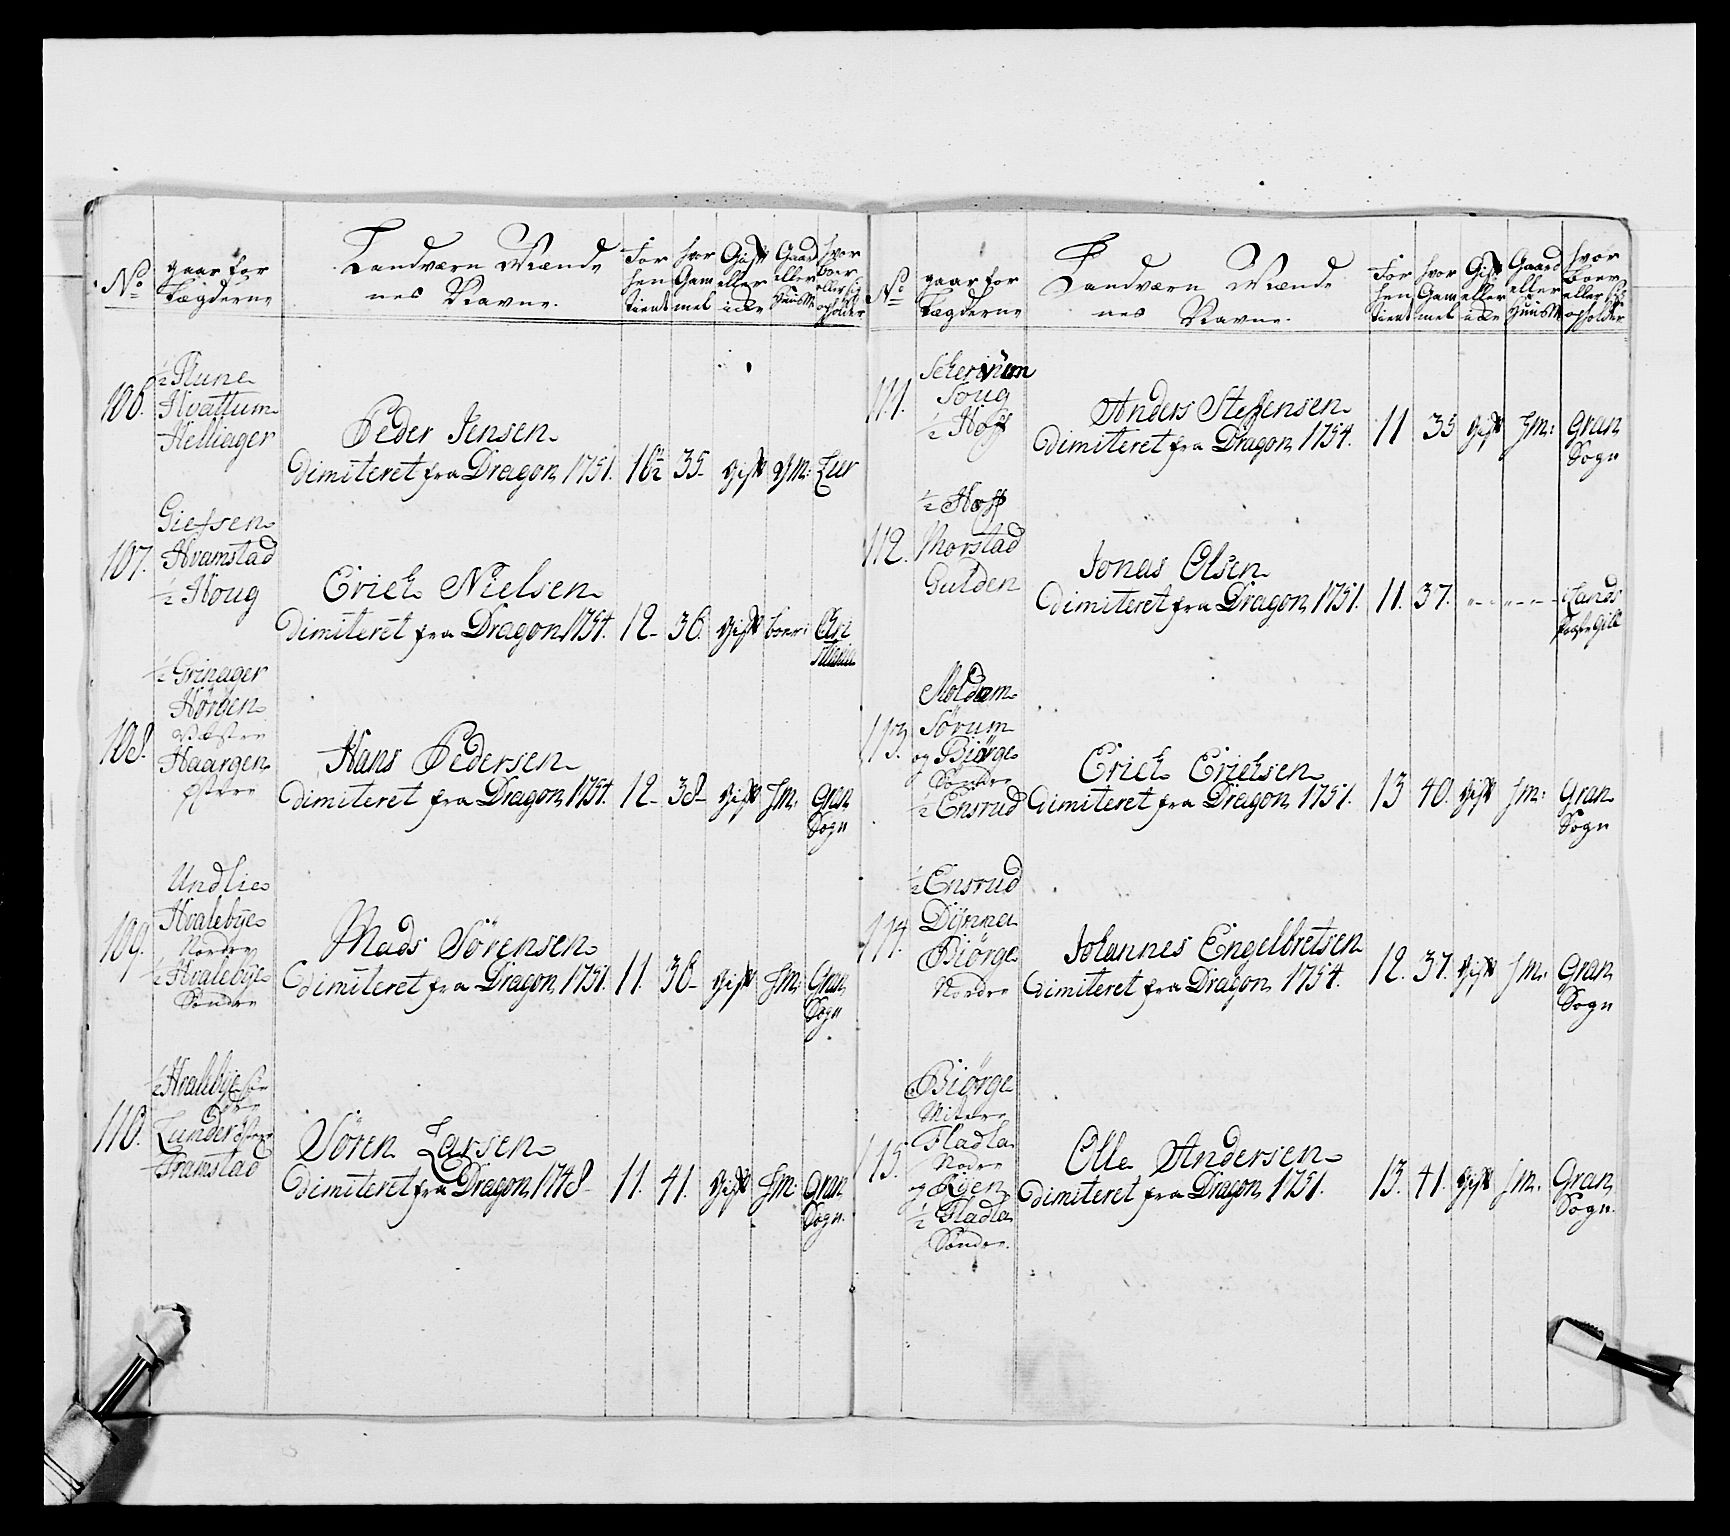 No
gaar for Lægderne
Landværn Mænde
nes Navne.
For hen tient
hvor Gam mel
Gift eller icke
Gaard eller huusm
hvor boer eller sig opholder
106.
½ Flune
Hvattum
Helliager
Peder Jensen
dimiteret fra Dragon 1751. 10½ 35 gift Hm: Lier
107.
Giefsen
Hvamstad
½ Houg
Erich Nielsen
dimiteret fra Dragon 1754. 12 36. gift boer: Chri
stiania
108.
½ Grinager
Hörgen
Vestre
Haargen
østre
Hans Pedersen
dimiteret fra Dragon 1754. 12 38 gift Hm: Gran
Sogn
109.
Undlie
Hvalebÿe
Nordre
½ Hvalebÿe
Söndre
Mads Sörensen
dimiteret fra Dragon 1751. 11. 36 gift Hm: Gran
Sogn
110.
½ Hvalebÿe Sön
dre
Lunder østre
Framstad
Sören Larsen
dimiteret fra Dragon 1748 11. 41. gift Hm. Gran
Sogn.
No
gaar for Lægderne
Landværn Mænde
nes Navne.
For hen tient
hvor Gam mel
Gift eller icke
Gaard eller huusm
hvor boer eller sig opholder
111.
Schervum
Soug
½ Hoff
Anders Steffensen
dimiteret fra Dragon 1754. 11 35 gift Hm: Gran
Sogn
112.
½ Hoff
Morstad
Gulden
Jonas Olsen
dimiteret fra Dragon 1751. 11. 37. Lands
Præstegield
113.
Moldum
Sörum
og Biörge
Söndre
½ Ensrud
Erich Erichsen
dimiteret fra Dragon 1751. 13 40. gift Hm: Gran
Sogn
114.
½ Ensrud
Dÿnna
Biörge
Nordre
Johannes Engelbretsen
dimiteret fra Dragon 1754. 12. 37. gift Hm: Gran
Sogn
115.
Biörge
Mitdre
Fladla
Nodre
og Röen
½ Fladla
Söndre.
Olle Andersen
dimiteret fra Dragon 1751. 13. 41. gift Hm. Gran
Sogn.